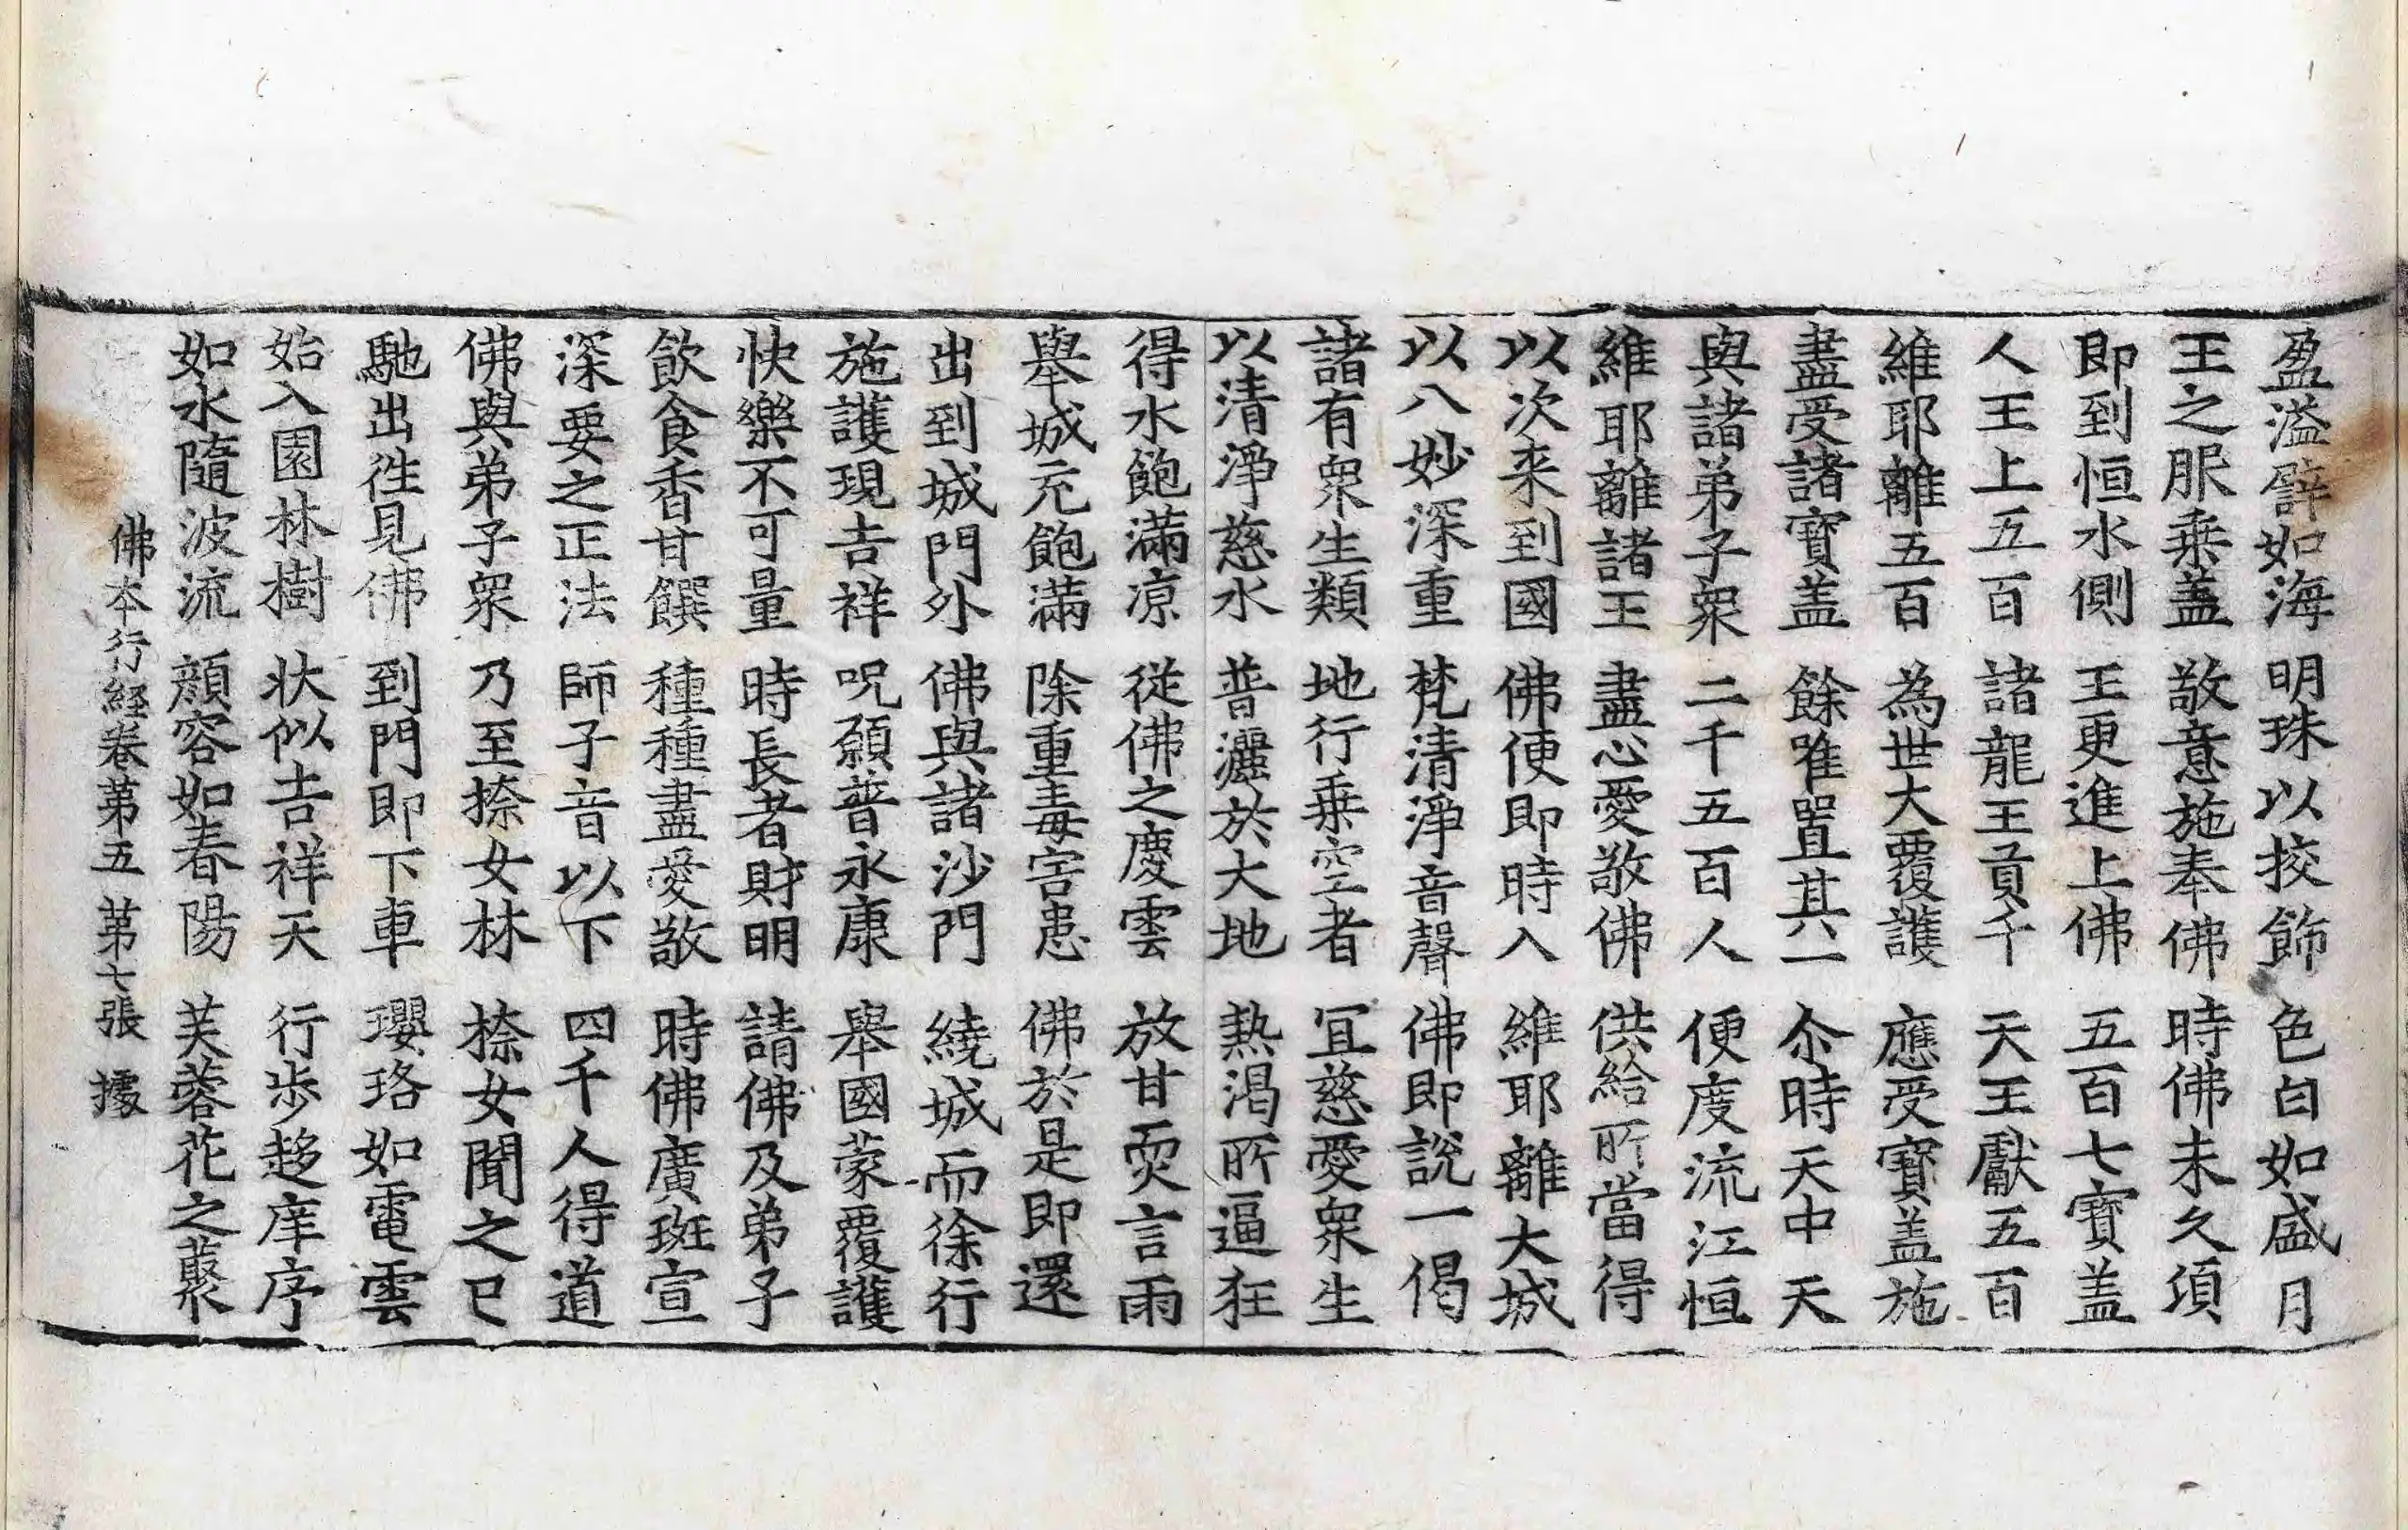 盈溢譬如海 明珠以挍飾 色白如盛月
王之服乗盖 敬意施奉佛 時佛未久湏
即到恒水側 王更進上佛 五百七寳盖
人王上五百 諸龍王貢千 天王獻五百
維耶離五百 為世大覆護 應受寳盖施
盡受諸寳盖 餘唯置其一 尒時天中天
與諸弟子衆 二千五百人 便度流江恒
維耶離諸王 盡心愛敬佛 供給所當得
以次来到國 佛便即時入 維耶離大城
以八妙深重 梵清淨音聲 佛即說一偈
諸有衆生類 地行乗空者 冝慈愛衆生
以清淨慈水 普灑於大地 熱渴所逼狂
得水飽滿凉 従佛之慶雲 放甘䨱言雨
舉城充飽滿 除重毒害患 佛於是即還
出到城門外 佛與諸沙門 繞城而徐行
施護現吉祥 呪願普永康 舉國蒙覆護
快樂不可量 時長者財明 請佛及弟子
飲食香甘饌 種種盡愛敬 時佛廣班宣
深要之正法 師子音以下 四千人得道
佛與弟子衆 乃至㮈女林 㮈女聞之已
馳出徃見佛 到門即下車 瓔珞如電雲
始入園林樹 状似吉祥天 行步趍庠序
如水隨波流 顔容如春陽 芙蓉花之藂
佛本行經卷第五 第七張 據